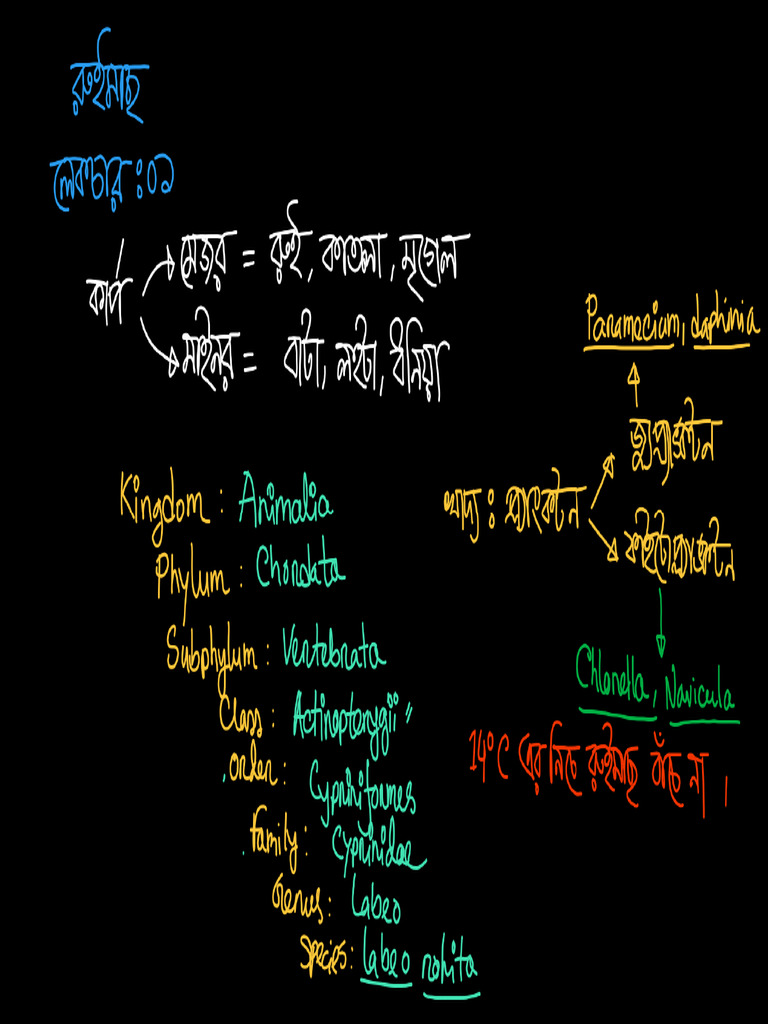 রুইমাছ
লেকচার : ০১
কার্প
মেজর = রুই, কাতলা, মৃগেল
মাইনর = বাটা, লইটা, ধনিয়া
Paramecium, daphinia
জুপ্ল্যাঙ্কটন
খাদ্য : প্ল্যাংকটন
ফাইটোপ্ল্যাঙ্কটন
Chlorella, Navicula
14°C এর নিচে রুইমাছ বাঁচে না ।
Kingdom : Animalia
Phylum : Chordata
Subphylum : Vertebrata
Class : Actinopterygii "
order : Cypriniformes
family : Cyprinidae
Genus : Labeo
species : labeo rohita